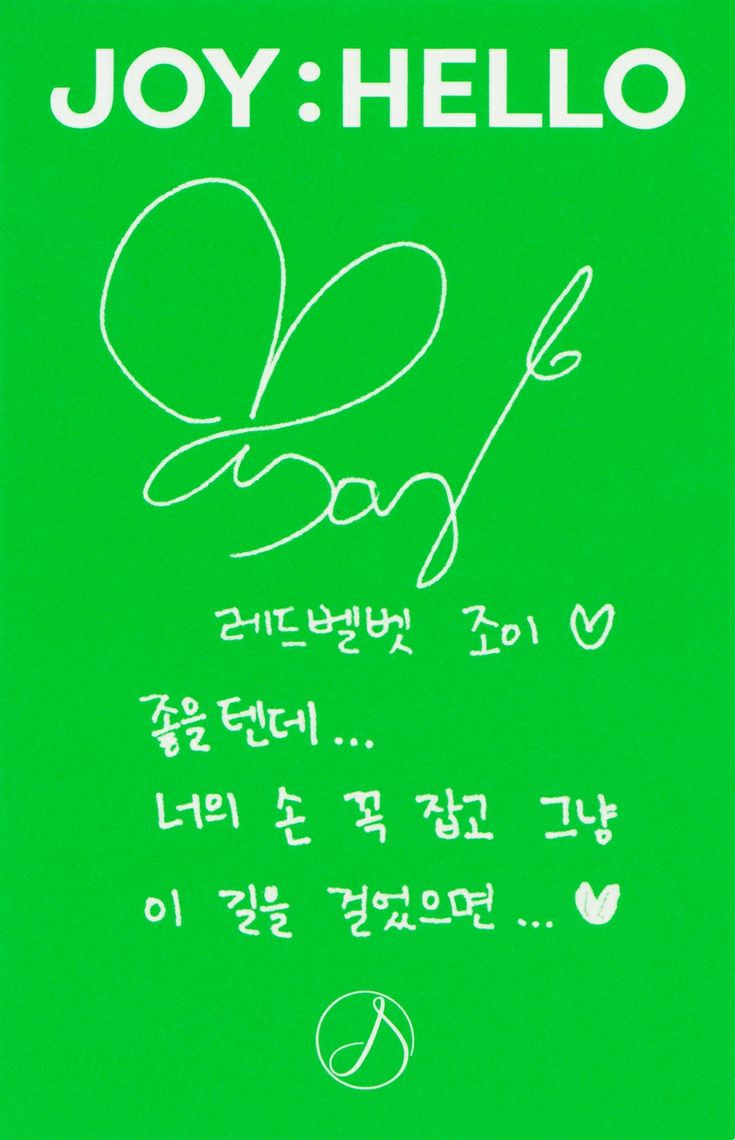 JOY : HELLO
레드벨벳 조이 ♡
좋을텐데...
너의 손 꼭 잡고 그냥
이 길을 걸었으면... ♥